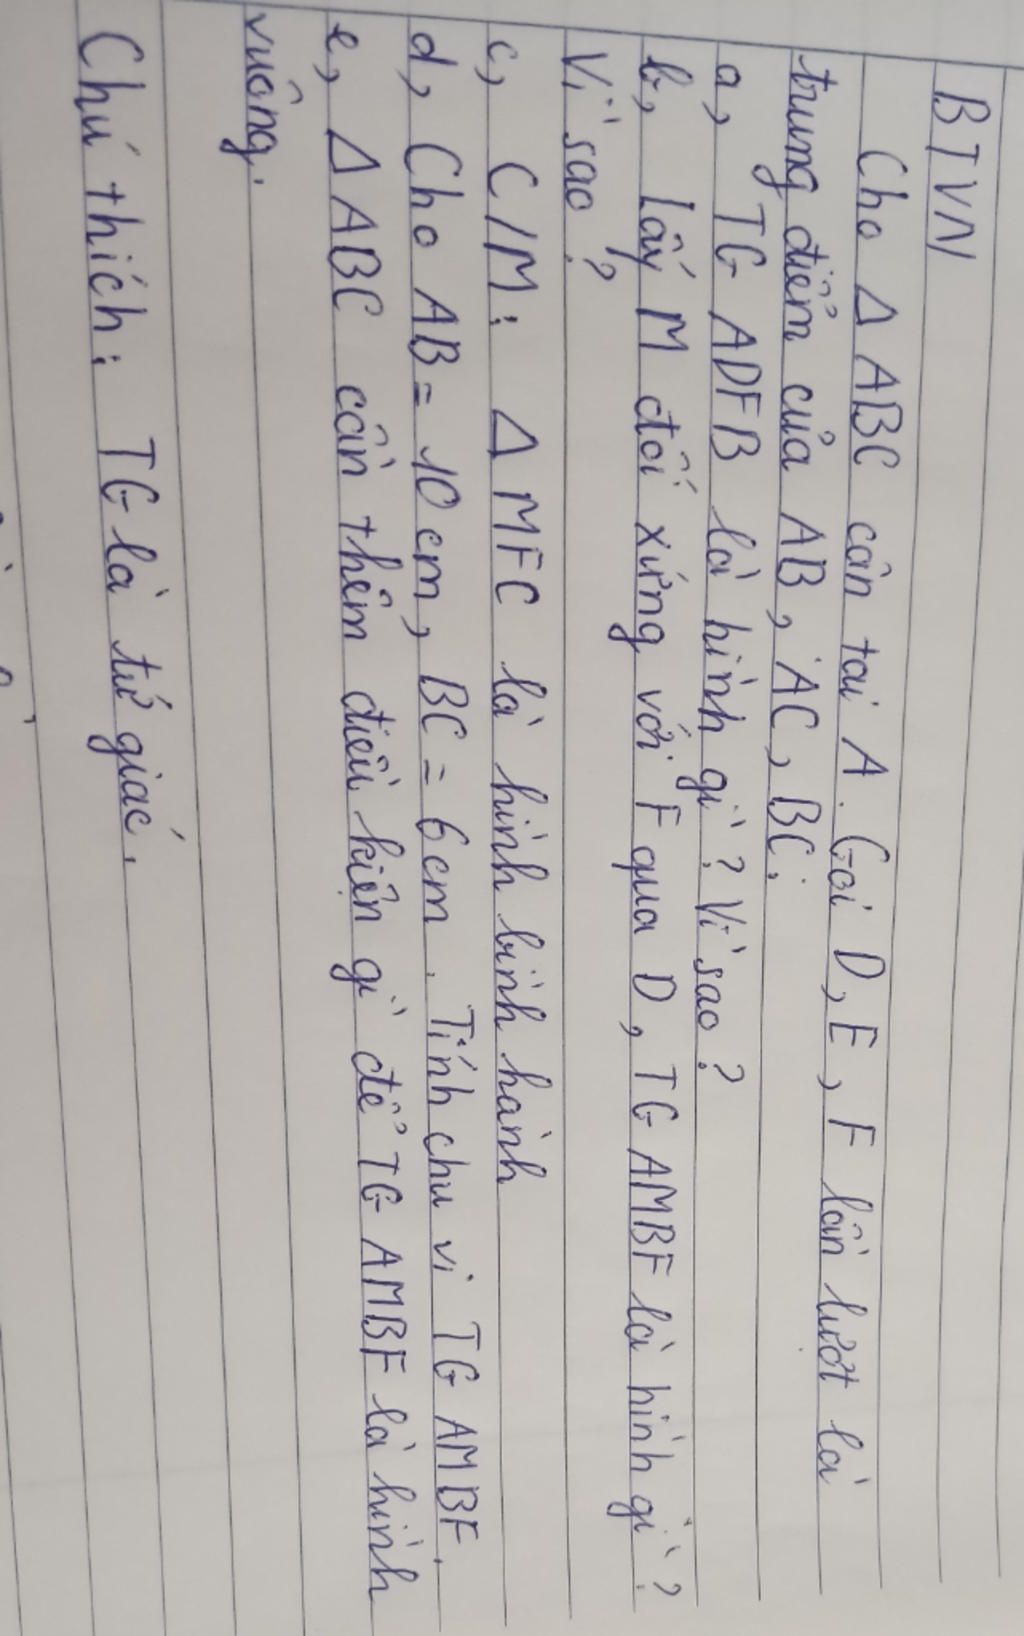 BTVN
Cho Δ ABC cân tại A. Gọi D, E, F lần lượt là
trung điểm của AB, AC, BC.
a, TG ADFB là hình gì? Vì sao?
b, lấy M đối xứng với F qua D, TG AMBF là hình gì?
Vì sao?
c, C/M: Δ MFC là hình bình hành
d, Cho AB = 10 cm, BC = 6 cm. Tính chu vi TG AMBF.
e, Δ ABC cần thêm điều kiện gì để TG AMBF là hình
vuông.
Chú thích: TG là tứ giác.